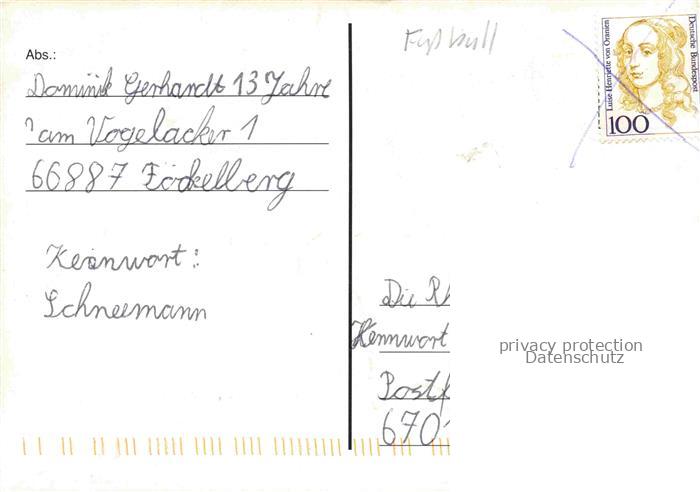 Abs.:
Dominik Gerhardt 13 Jahre
am Vogelacker 1
66887 Föckelberg
Kennwort:
Schneemann
Fußball
Luise Henriette von Oranien
Deutsche Bundespost
100
Die Rh
Kennwort
Postf
670
privacy protection
Datenschutz